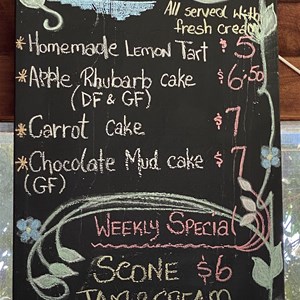 All served with
fresh cream
*Homemade Lemon Tart $5
*Apple Rhubarb cake $6.50
(DF & GF)
*Carrot cake $7
*Chocolate Mud cake $7
(GF)
WEEKLY SPECIAL
SCONE $6
JAM & CREAM